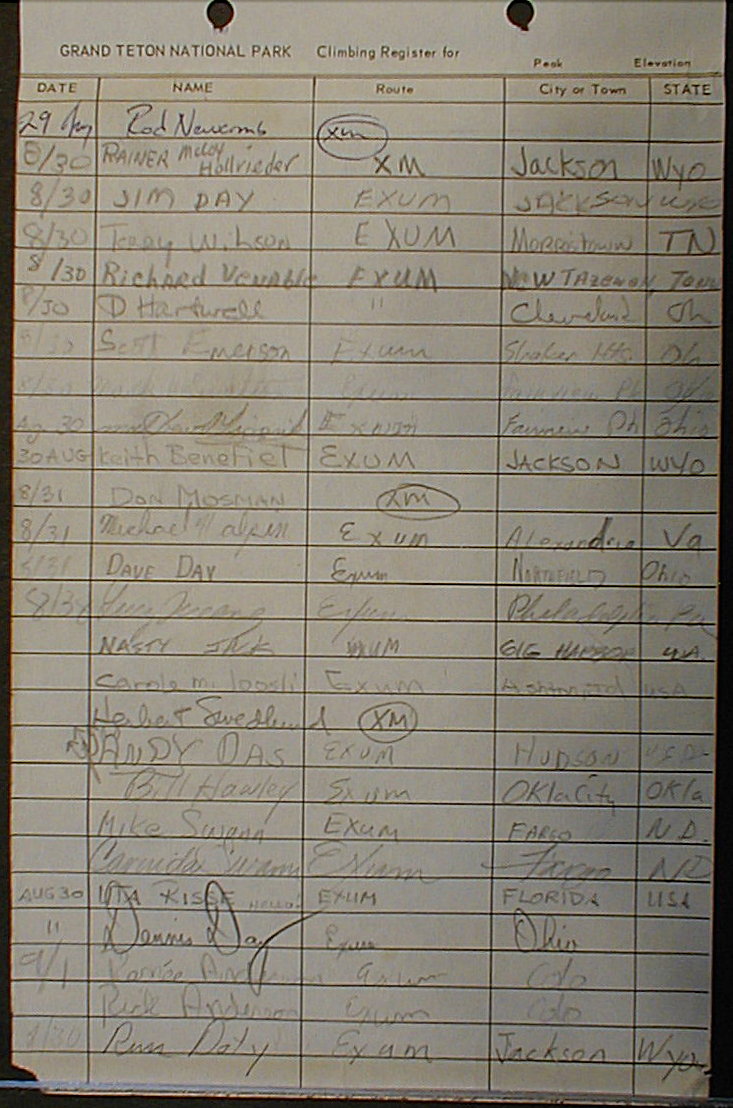 GRAND TETON NATIONAL PARK Climbing Register for
Peak Elevation
DATE NAME Route City or Town STATE
29 Rod Newcomb XM
8/30 RAINER Hollrieder XM Jackson Wyo
8/30 JIM DAY EXUM JACKSON WYO
8/30 Terry Wilson EXUM Morristown TN
8/30 Richard Venable EXUM NEW TAZEWELL Tenn
8/30 D Hartwell " Cleveland Oh
8/30 Scott Emerson Exum Shaker Hts. Oh
Exum
Aug 30 Exum Fairview Pk Ohio
30 AUG Keith Benefiel EXUM JACKSON WYO
8/31 DON MOSMAN XM
8/31 Michael Halpin EXUM Alexandria Va
8/31 DAVE DAY Exum NORTHFIELD Ohio
Exum Philadelphia Pa
NASTY JACK EXUM GIG HARBOR WA.
Carole m. loosli Exum Ashton, Id USA
Herbert Swedlund XM
ANDY DAS EXUM HUDSON
Bill Hawley Exum OKla City OKla
Mike Swann EXUM FARGO N.D.
Swann Exum Fargo ND
AUG 30 UTA RISSE HELLO! EXUM FLORIDA USA
" Dennis Day Exum Ohio
9/1 Anderson Exum Colo
Rick Anderson Exum Colo
Doty Exum Jackson Wyo